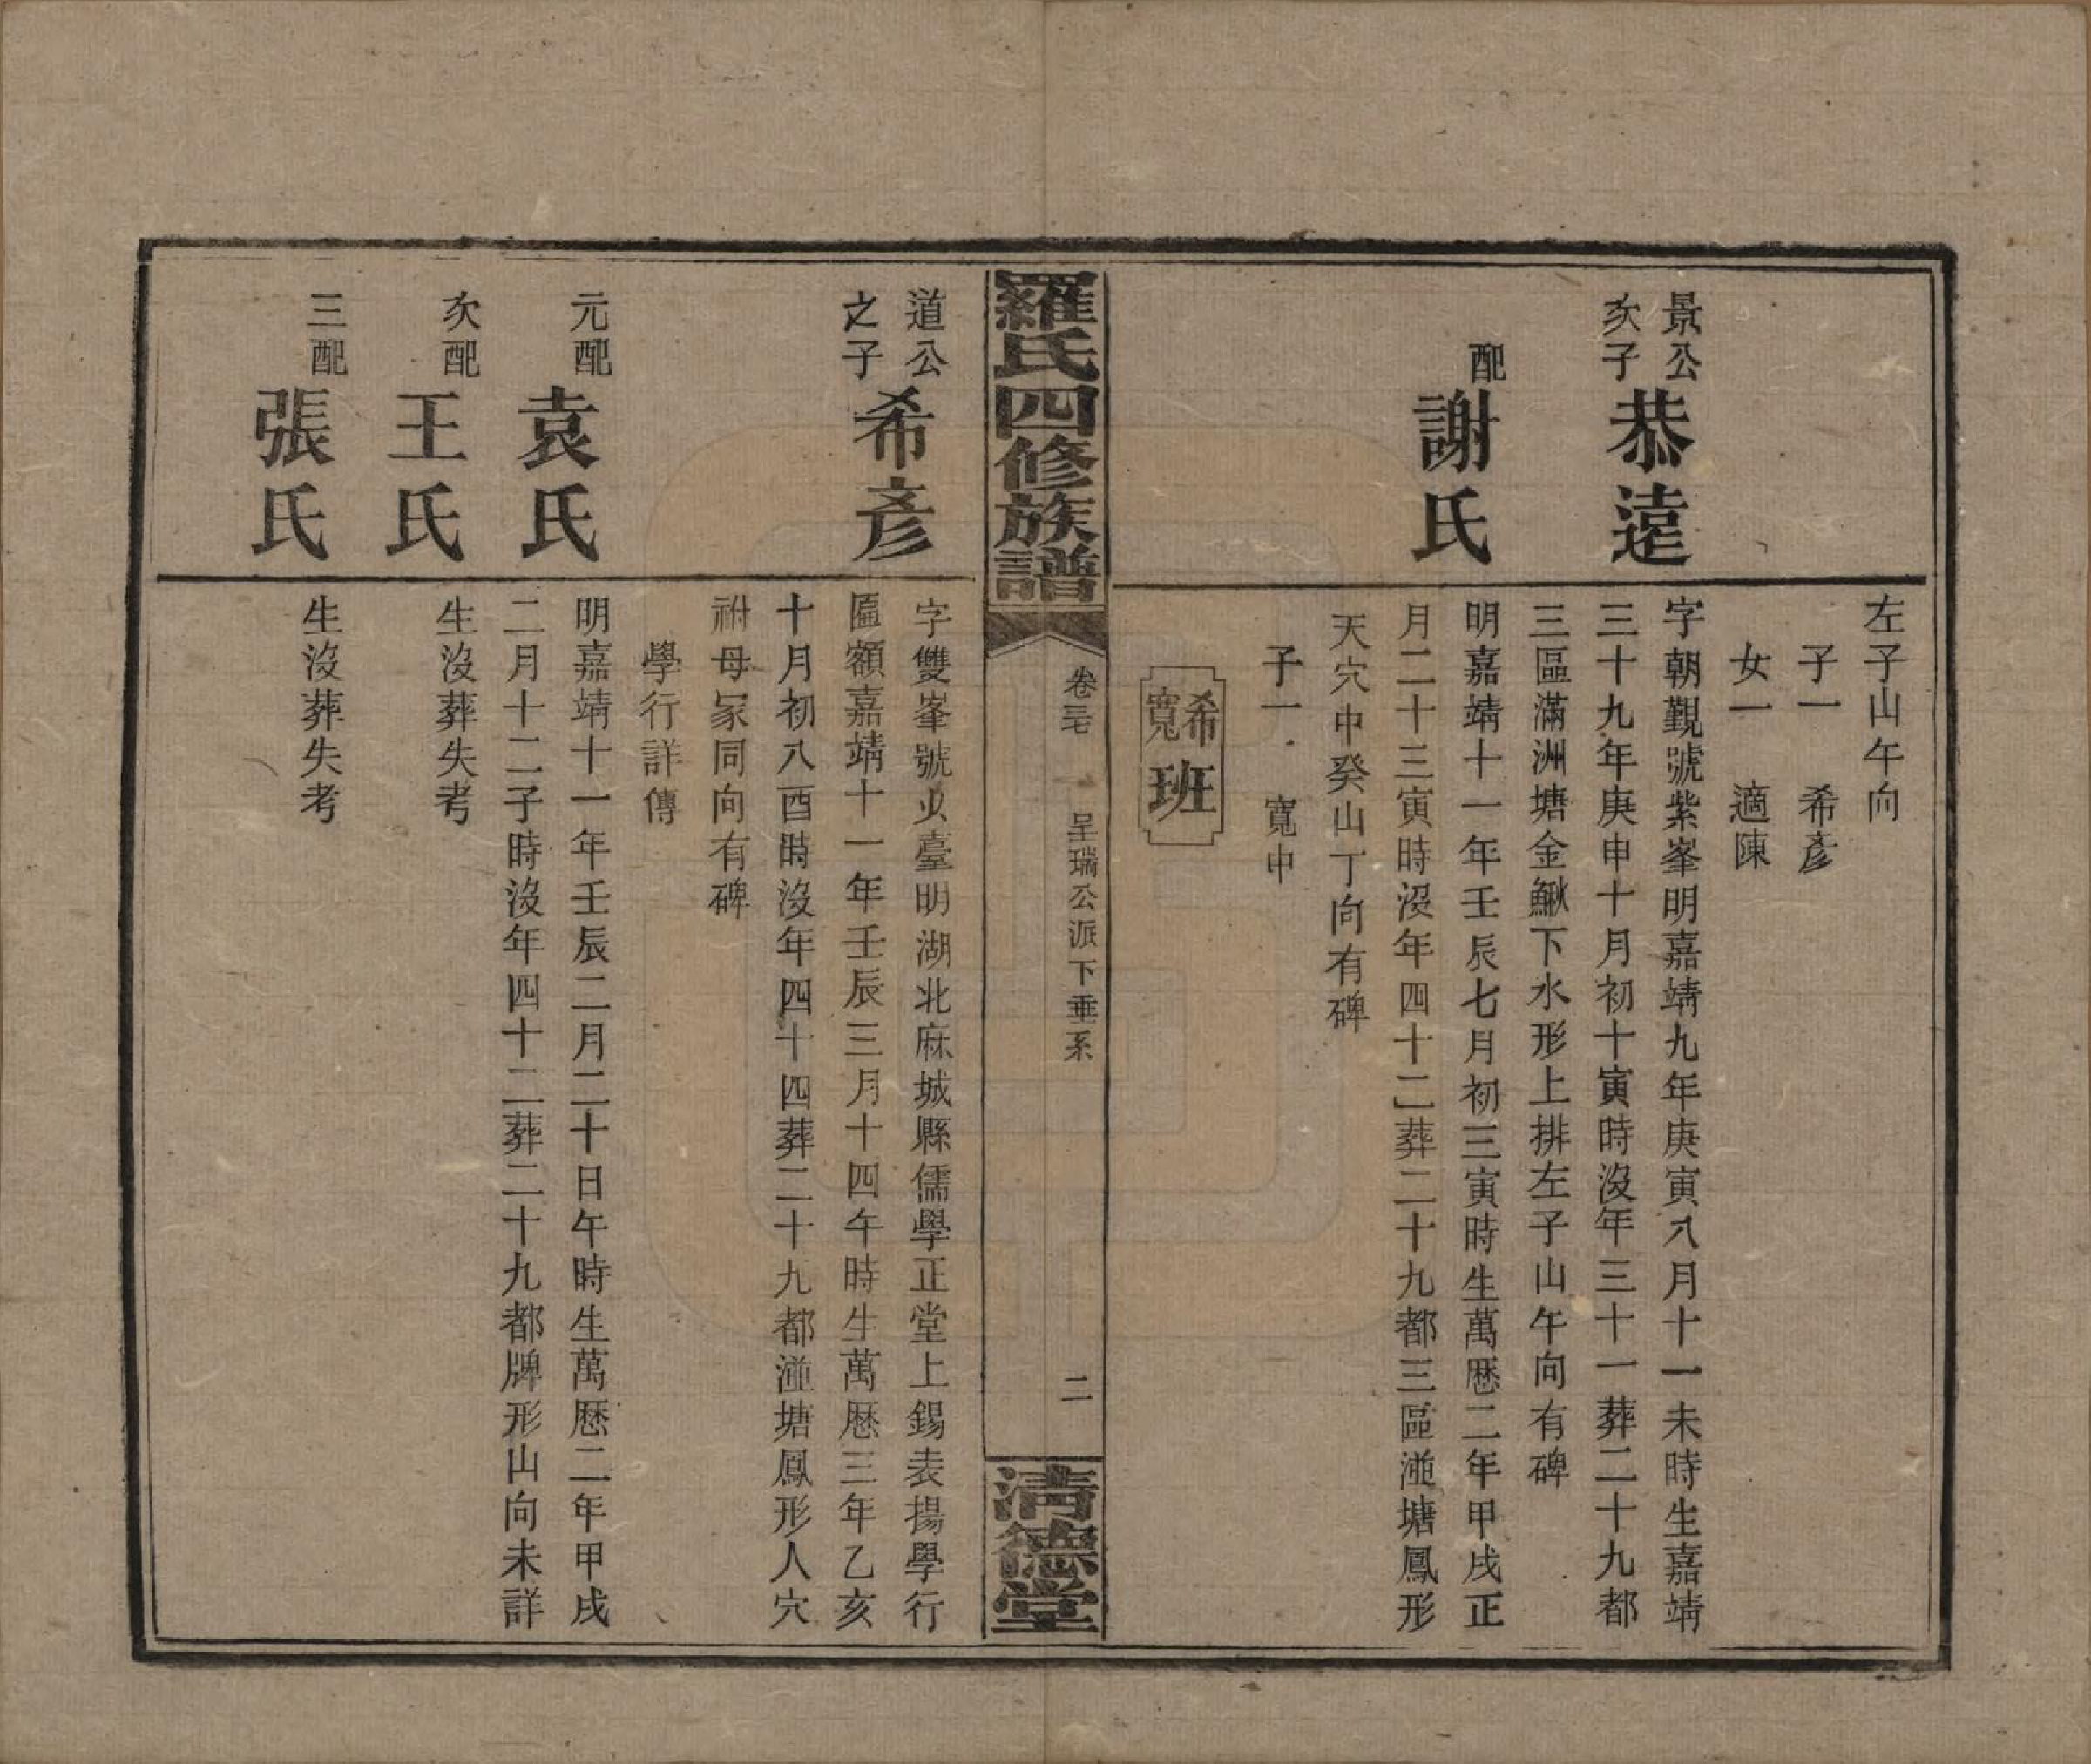 左子山午向
子一　希彥
女一　適陳
景公
次子
恭遠
字朝觀號紫峯明嘉靖九年庚寅八月十一未時生嘉靖
三十九年庚申十月初十寅時沒年三十一葬二十九都
三區滿洲塘金鰍下水形上排左子山午向有碑
配
謝氏
明嘉靖十一年壬辰七月初三寅時生萬厯二年甲戌正
月二十三寅時沒年四十二葬二十九都三區湴塘鳳形
天穴中癸山丁向有碑
子一　寬中
希
寬
班
羅氏四修族譜
卷三七
呈瑞公派下垂系
二
清德堂
道公
之子
希彥
字雙峯號少臺明湖北麻城縣儒學正堂上錫表揚學行
匾額嘉靖十一年壬辰三月十四午時生萬厯三年乙亥
十月初八酉時沒年四十四葬二十九都湴塘鳳形人穴
祔母冢同向有碑
學行詳傳
元配
袁氏
明嘉靖十一年壬辰二月二十日午時生萬厯二年甲戌
二月十二子時沒年四十二葬二十九都牌形山向未詳
次配
王氏
生沒葬失考
三配
張氏
生沒葬失考